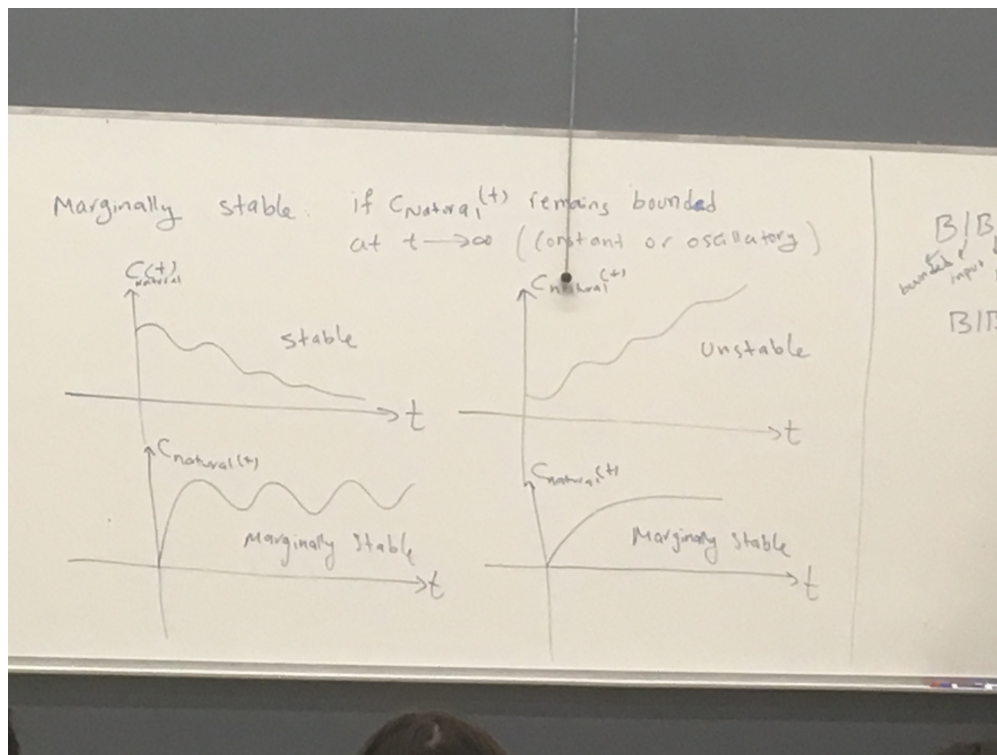 Marginally stable. if CNatural(t) remains bounded
at t→∞ (Constant or oscillatory)
C(t)
Natural
Stable
t
Cnatural(t)
Unstable
t
Cnatural(t)
Marginally stable
t
Cnatural(t)
Marginally stable
t
B/B
bounded
input
B/